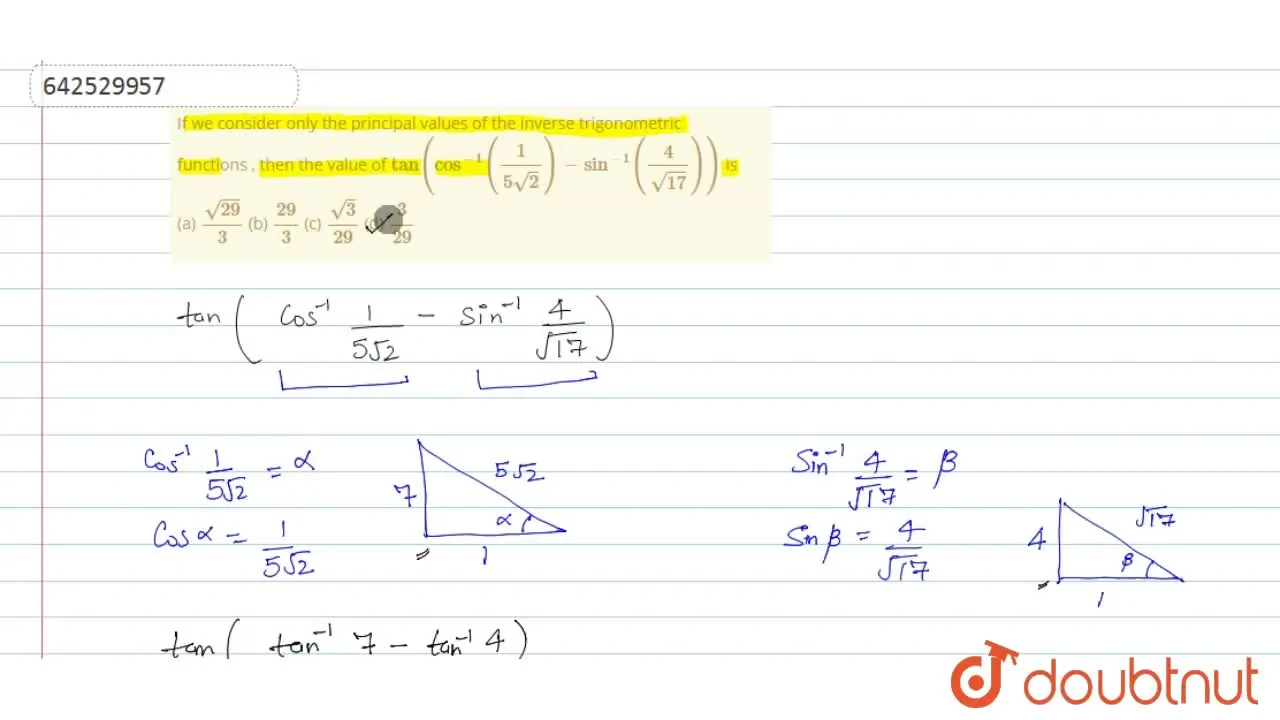 642529957
If we consider only the principal values of the inverse trigonometric
functions , then the value of tan(cos⁻¹(1/5√2) − sin⁻¹(4/√17)) is
(a) √29/3 (b) 29/3 (c) √3/29 (d) 3/29
tan( Cos⁻¹ 1/5√2 − Sin⁻¹ 4/√17 )
Cos⁻¹ 1/5√2 = α
5√2
7
α
1
Cos α = 1/5√2
Sin⁻¹ 4/√17 = β
Sin β = 4/√17
√17
4
β
1
tan( tan⁻¹ 7 − tan⁻¹ 4 )
doubtnut